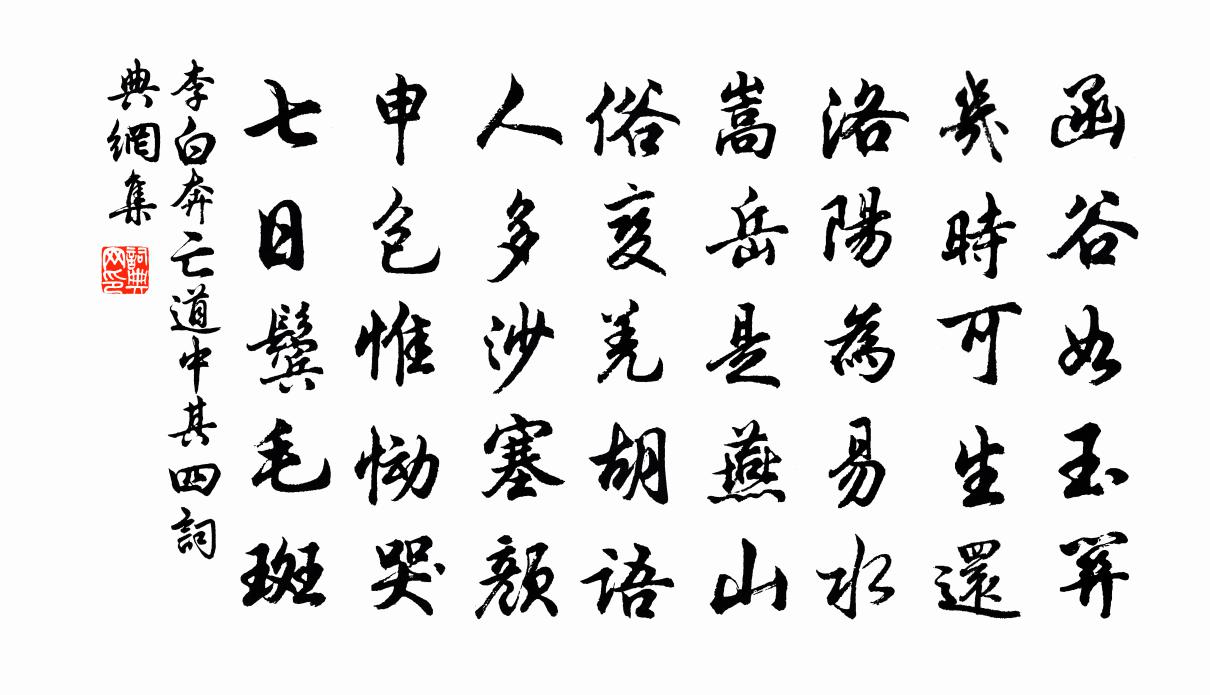 函谷如玉關
幾時可生還
洛陽為易水
嵩岳是燕山
俗變羌胡語
人多沙塞顏
申包惟慟哭
七日鬢毛斑
李白奔亡道中其四詞
典網集
詞典
网印